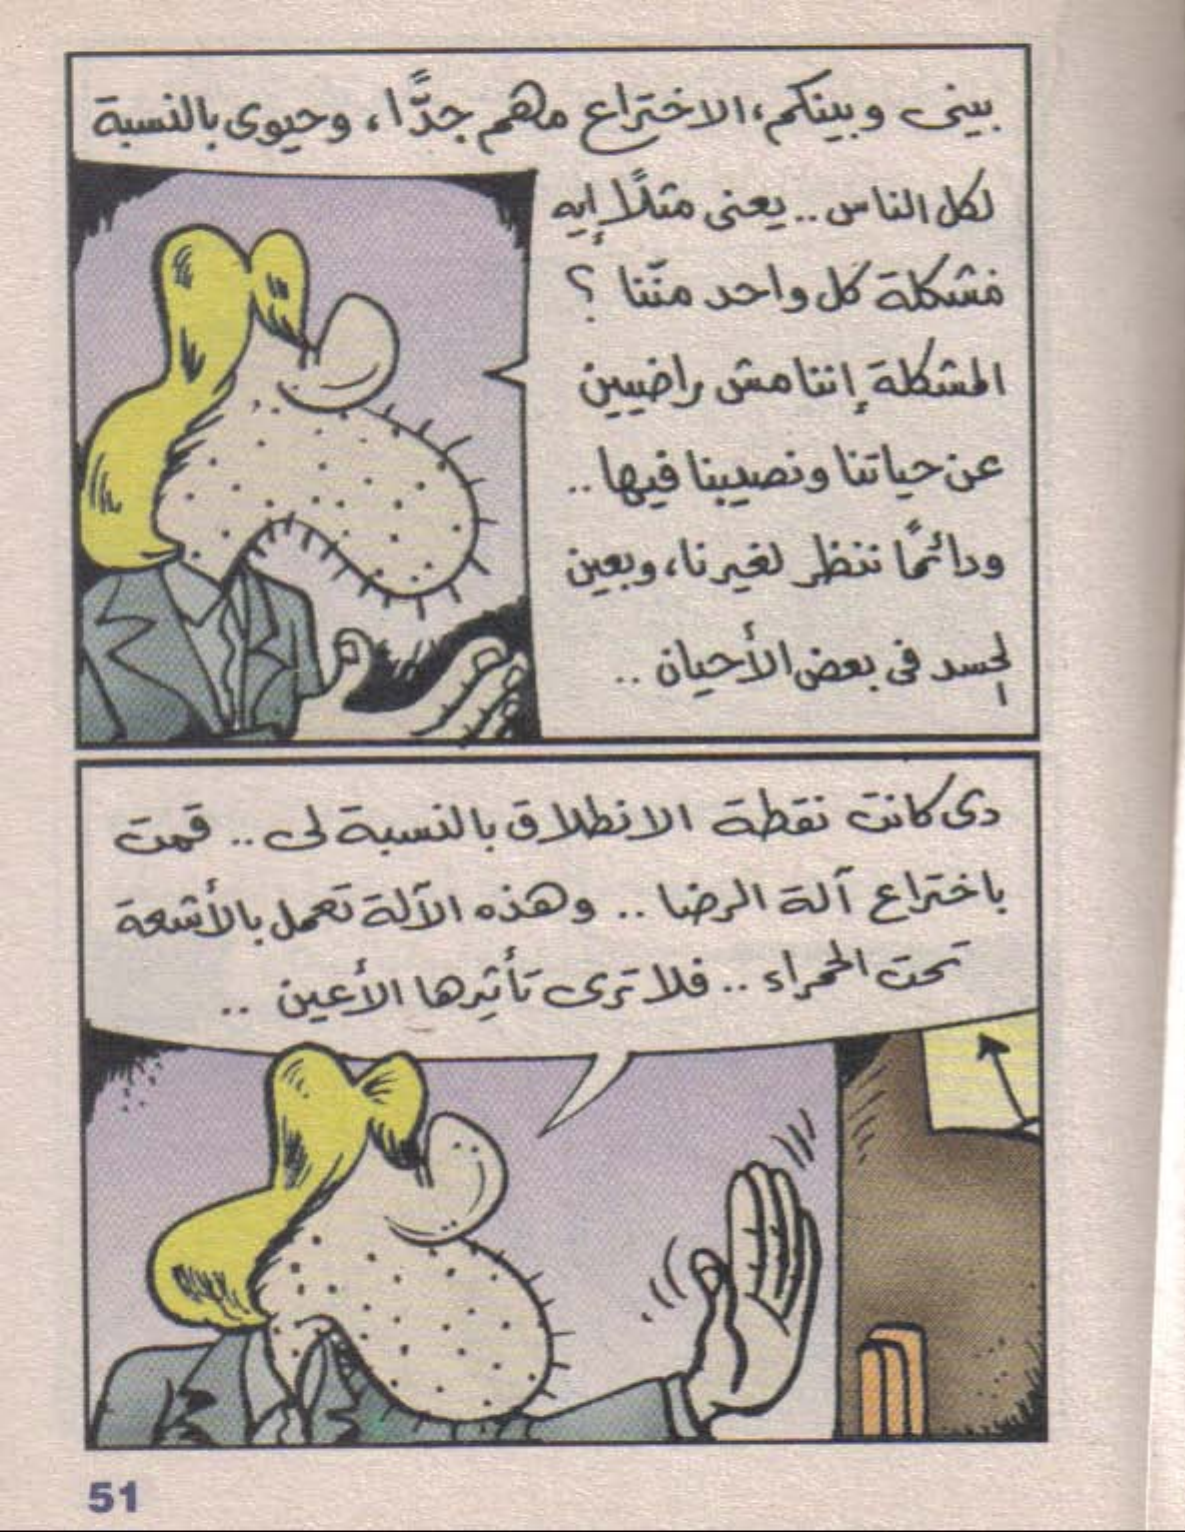 بينى وبينكم، الاختراع مهم جدًّا، وحيوى بالنسبة
لكل الناس .. يعنى مثلًا إيه
مشكلة كل واحد منّنا ؟
المشكلة إننا مش راضيين
عن حياتنا ونصيبنا فيها ..
ودائمًا ننظر لغيرنا، وبعين
الحسد فى بعض الأحيان ..
دى كانت نقطة الانطلاق بالنسبة لى .. قمت
باختراع آلة الرضا .. وهذه الآلة تعمل بالأشعة
تحت الحمراء .. فلا ترى تأثيرها الأعين ..
51